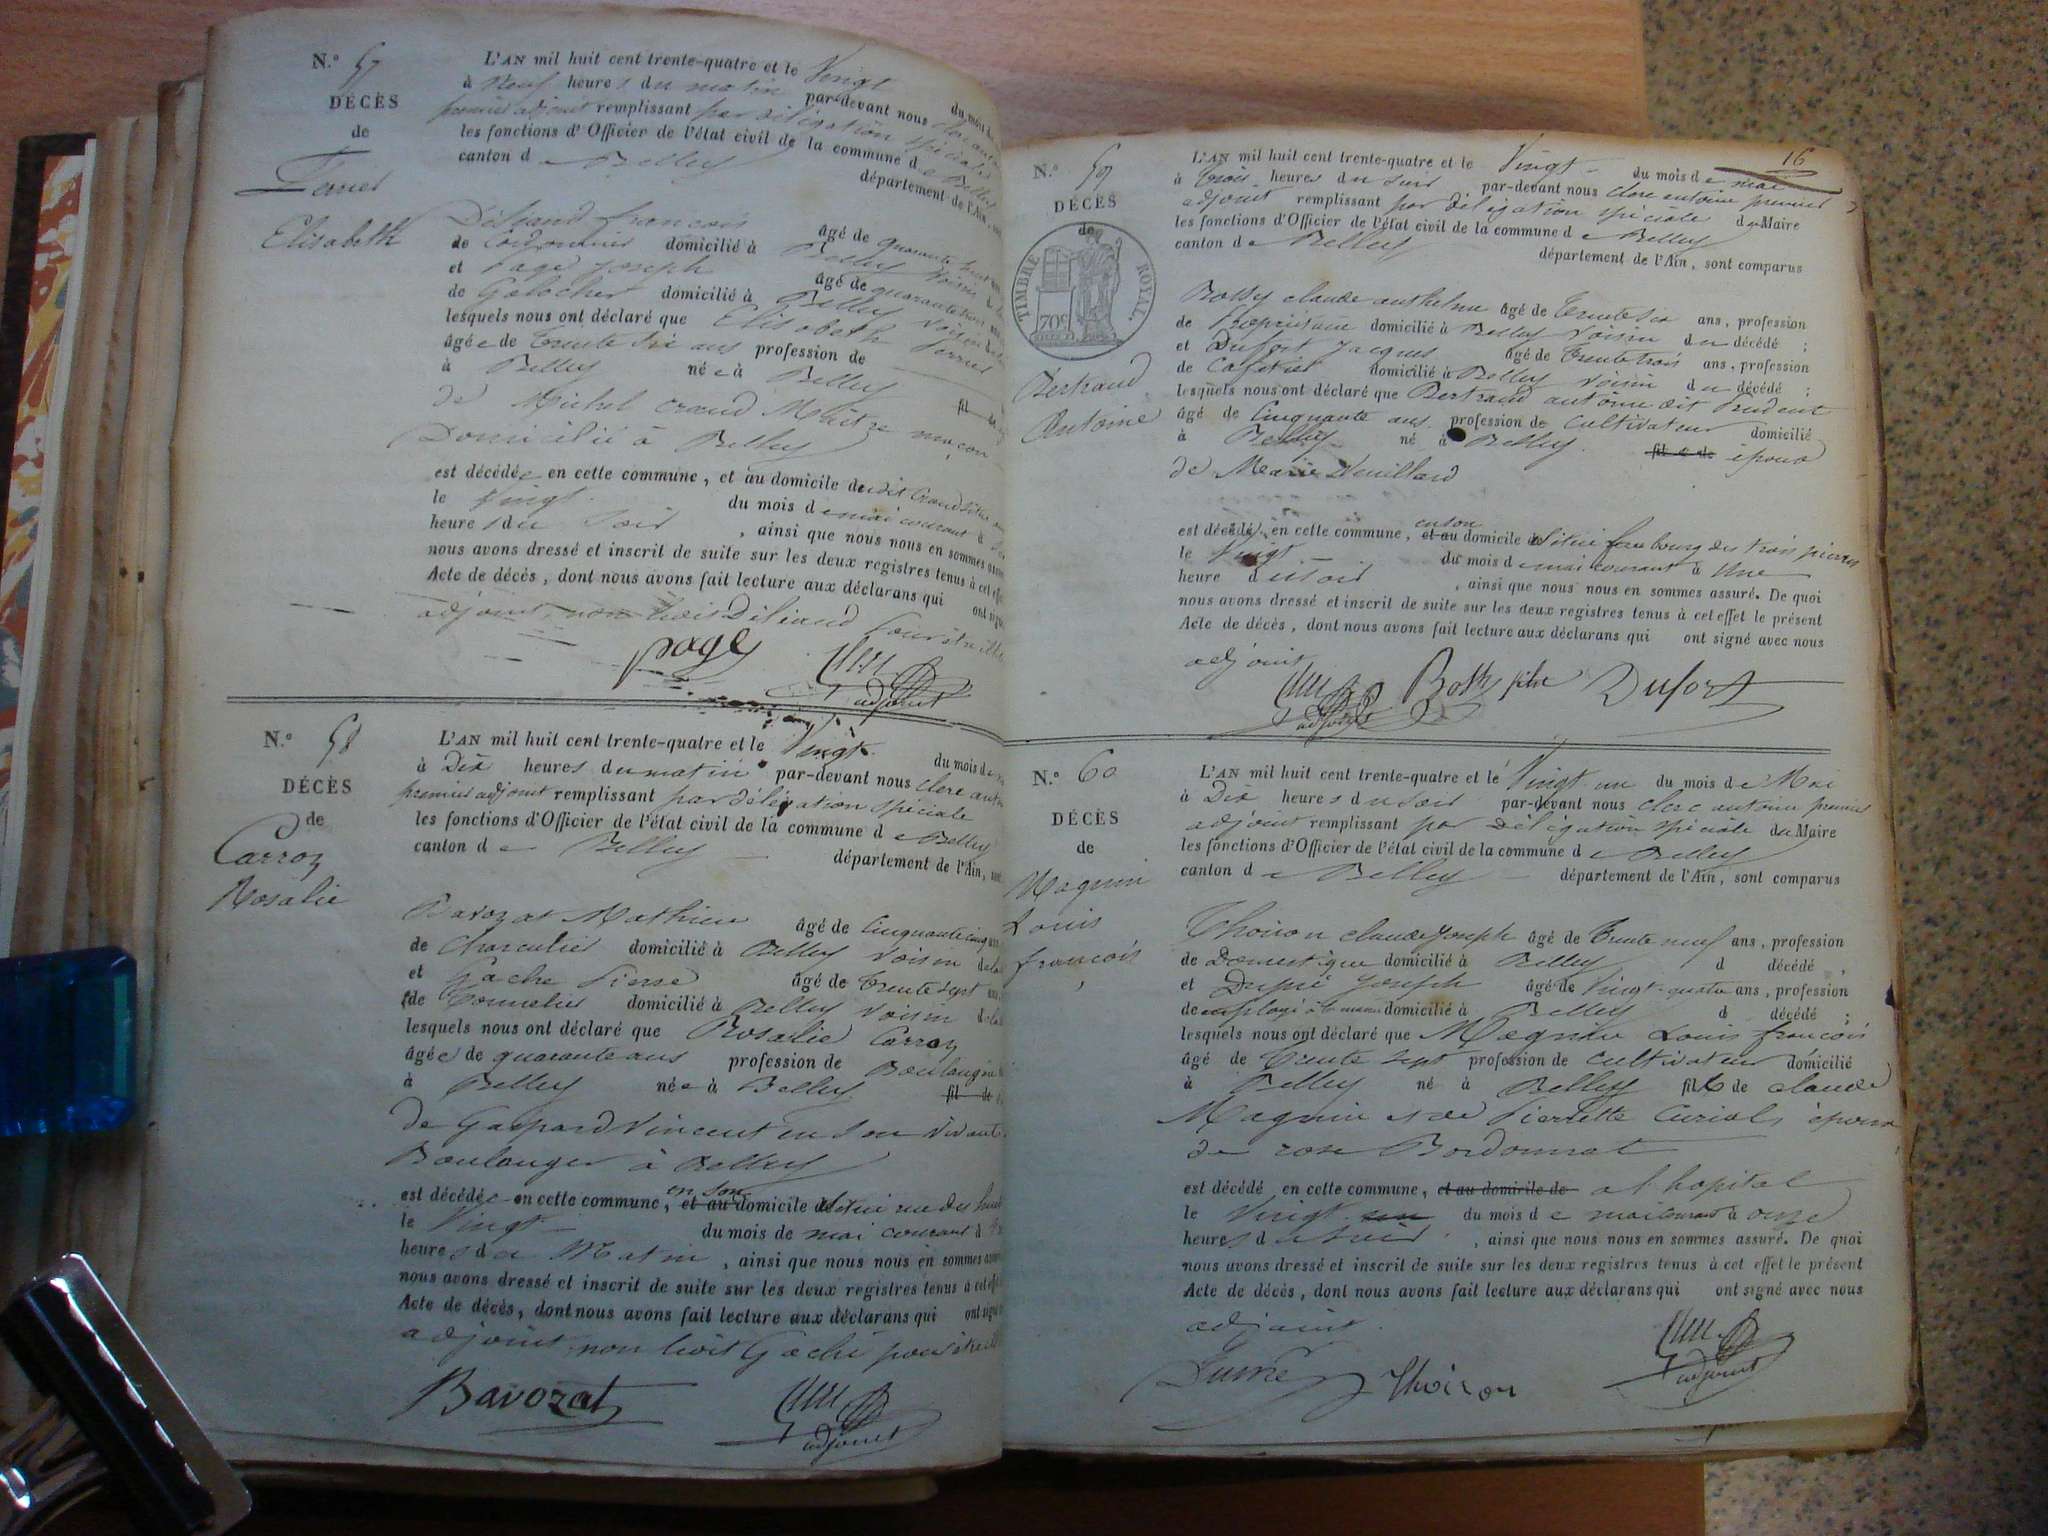 N.° 57
DÉCÈS
de
Ferrier
Elisabeth
L'AN mil huit cent trente-quatre et le Vingt du mois de
à Neuf heures du matin par-devant nous clerc
premier adjoint remplissant par délégation spéciale
les fonctions d'Officier de l'état civil de la commune de Belley
canton de Belley département de l'Ain,
françois âgé de quarante huit
de Cordonnier domicilié à Belley Voisin
et Page Joseph âgé de quarante
de Galocher domicilié à Belley voisin
lesquels nous ont déclaré que Elisabeth
âgée de Trente Six ans profession de
à Belley née à Belley fil de
de Michel Crand Maître maçon
Domicilié à Belley
est décédée en cette commune, et au domicile dudit Crand
le Vingt du mois de mai courant à
heure du Soir, ainsi que nous nous en sommes
nous avons dressé et inscrit de suite sur les deux registres tenus à cet
Acte de décès, dont nous avons fait lecture aux déclarans qui ont
adjoint, non pour
page
adjoint
N.° 58
DÉCÈS
de
Carroz
Rosalie
L'AN mil huit cent trente-quatre et le Vingt du mois de
à Dix heures du matin par-devant nous clerc
premier adjoint remplissant par délégation spéciale
les fonctions d'Officier de l'état civil de la commune de Belley
canton de Belley département de l'Ain,
Bavozat Mathieu âgé de Cinquante cinq
de Charcutier domicilié à Belley Voisin
et Gache Pierre âgé de Trente Sept
de Tonnelier domicilié à Belley Voisin
lesquels nous ont déclaré que Rosalie Carroz
âgée de quarante ans profession de
à Belley née à Belley fil de
de Gaspard Vincent en Son vivant
Boulanger à Belley
est décédée en cette commune, et au en son domicile Situé rue des
le Vingt du mois de mai courant à
heures du Matin, ainsi que nous nous en sommes
nous avons dressé et inscrit de suite sur les deux registres tenus à cet
Acte de décès, dont nous avons fait lecture aux déclarans qui ont
adjoint non Gache pour
Bavozat
adjoint
16
N.° 59
DÉCÈS
de
TIMBRE ROYAL.
70c
Bertrand
Antoine
L'AN mil huit cent trente-quatre et le Vingt du mois de mai
à Trois heures du Soir par-devant nous clerc antoine premier
adjoint remplissant par délégation spéciale du Maire
les fonctions d'Officier de l'état civil de la commune de Belley
canton de Belley département de l'Ain, sont comparus
claude anthelme âgé de Trente Six ans, profession
de Propriétaire domicilié à Belley Voisin du décédé ;
et Dufort Jacques âgé de Trente Trois ans, profession
de Cafetier domicilié à Belley Voisin du décédé ;
lesquels nous ont déclaré que Bertrand antoine dit Prudent
âgé de Cinquante ans profession de Cultivateur domicilié
à Belley né à Belley. fil de époux
de Marie
est décédé en cette commune, et au en son domicile Situé faubourg des trois pierres
le Vingt du mois de mai courant à Une
heure du Soir, ainsi que nous nous en sommes assuré. De quoi
nous avons dressé et inscrit de suite sur les deux registres tenus à cet effet le présent
Acte de décès, dont nous avons fait lecture aux déclarans qui ont signé avec nous
adjoint
adjoint Dufort
N.° 60
DÉCÈS
de
Magnin
Louis
françois
L'AN mil huit cent trente-quatre et le Vingt un du mois de Mai
à Dix heures du Soir par-devant nous clerc antoine premier
adjoint remplissant par délégation spéciale du Maire
les fonctions d'Officier de l'état civil de la commune de Belley
canton de Belley département de l'Ain, sont comparus
Thoiron claude Joseph âgé de Trente neuf ans, profession
de Domestique domicilié à Belley d décédé
et Joseph âgé de Vingt-quatre ans, profession
de employé à domicilié à Belley d décédé ;
lesquels nous ont déclaré que Magnin Louis françois
âgé de Trente Sept profession de Cultivateur domicilié
à Belley né à Belley fils de claude
Magnin et de Pierrette époux
de rose Bordonnat
est décédé en cette commune, et au domicile de a l hopital
le Vingt un du mois de mai courant à onze
heures du Soir, ainsi que nous nous en sommes assuré. De quoi
nous avons dressé et inscrit de suite sur les deux registres tenus à cet effet le présent
Acte de décès, dont nous avons fait lecture aux déclarans qui ont signé avec nous
adjoint.
Thoiron
adjoint